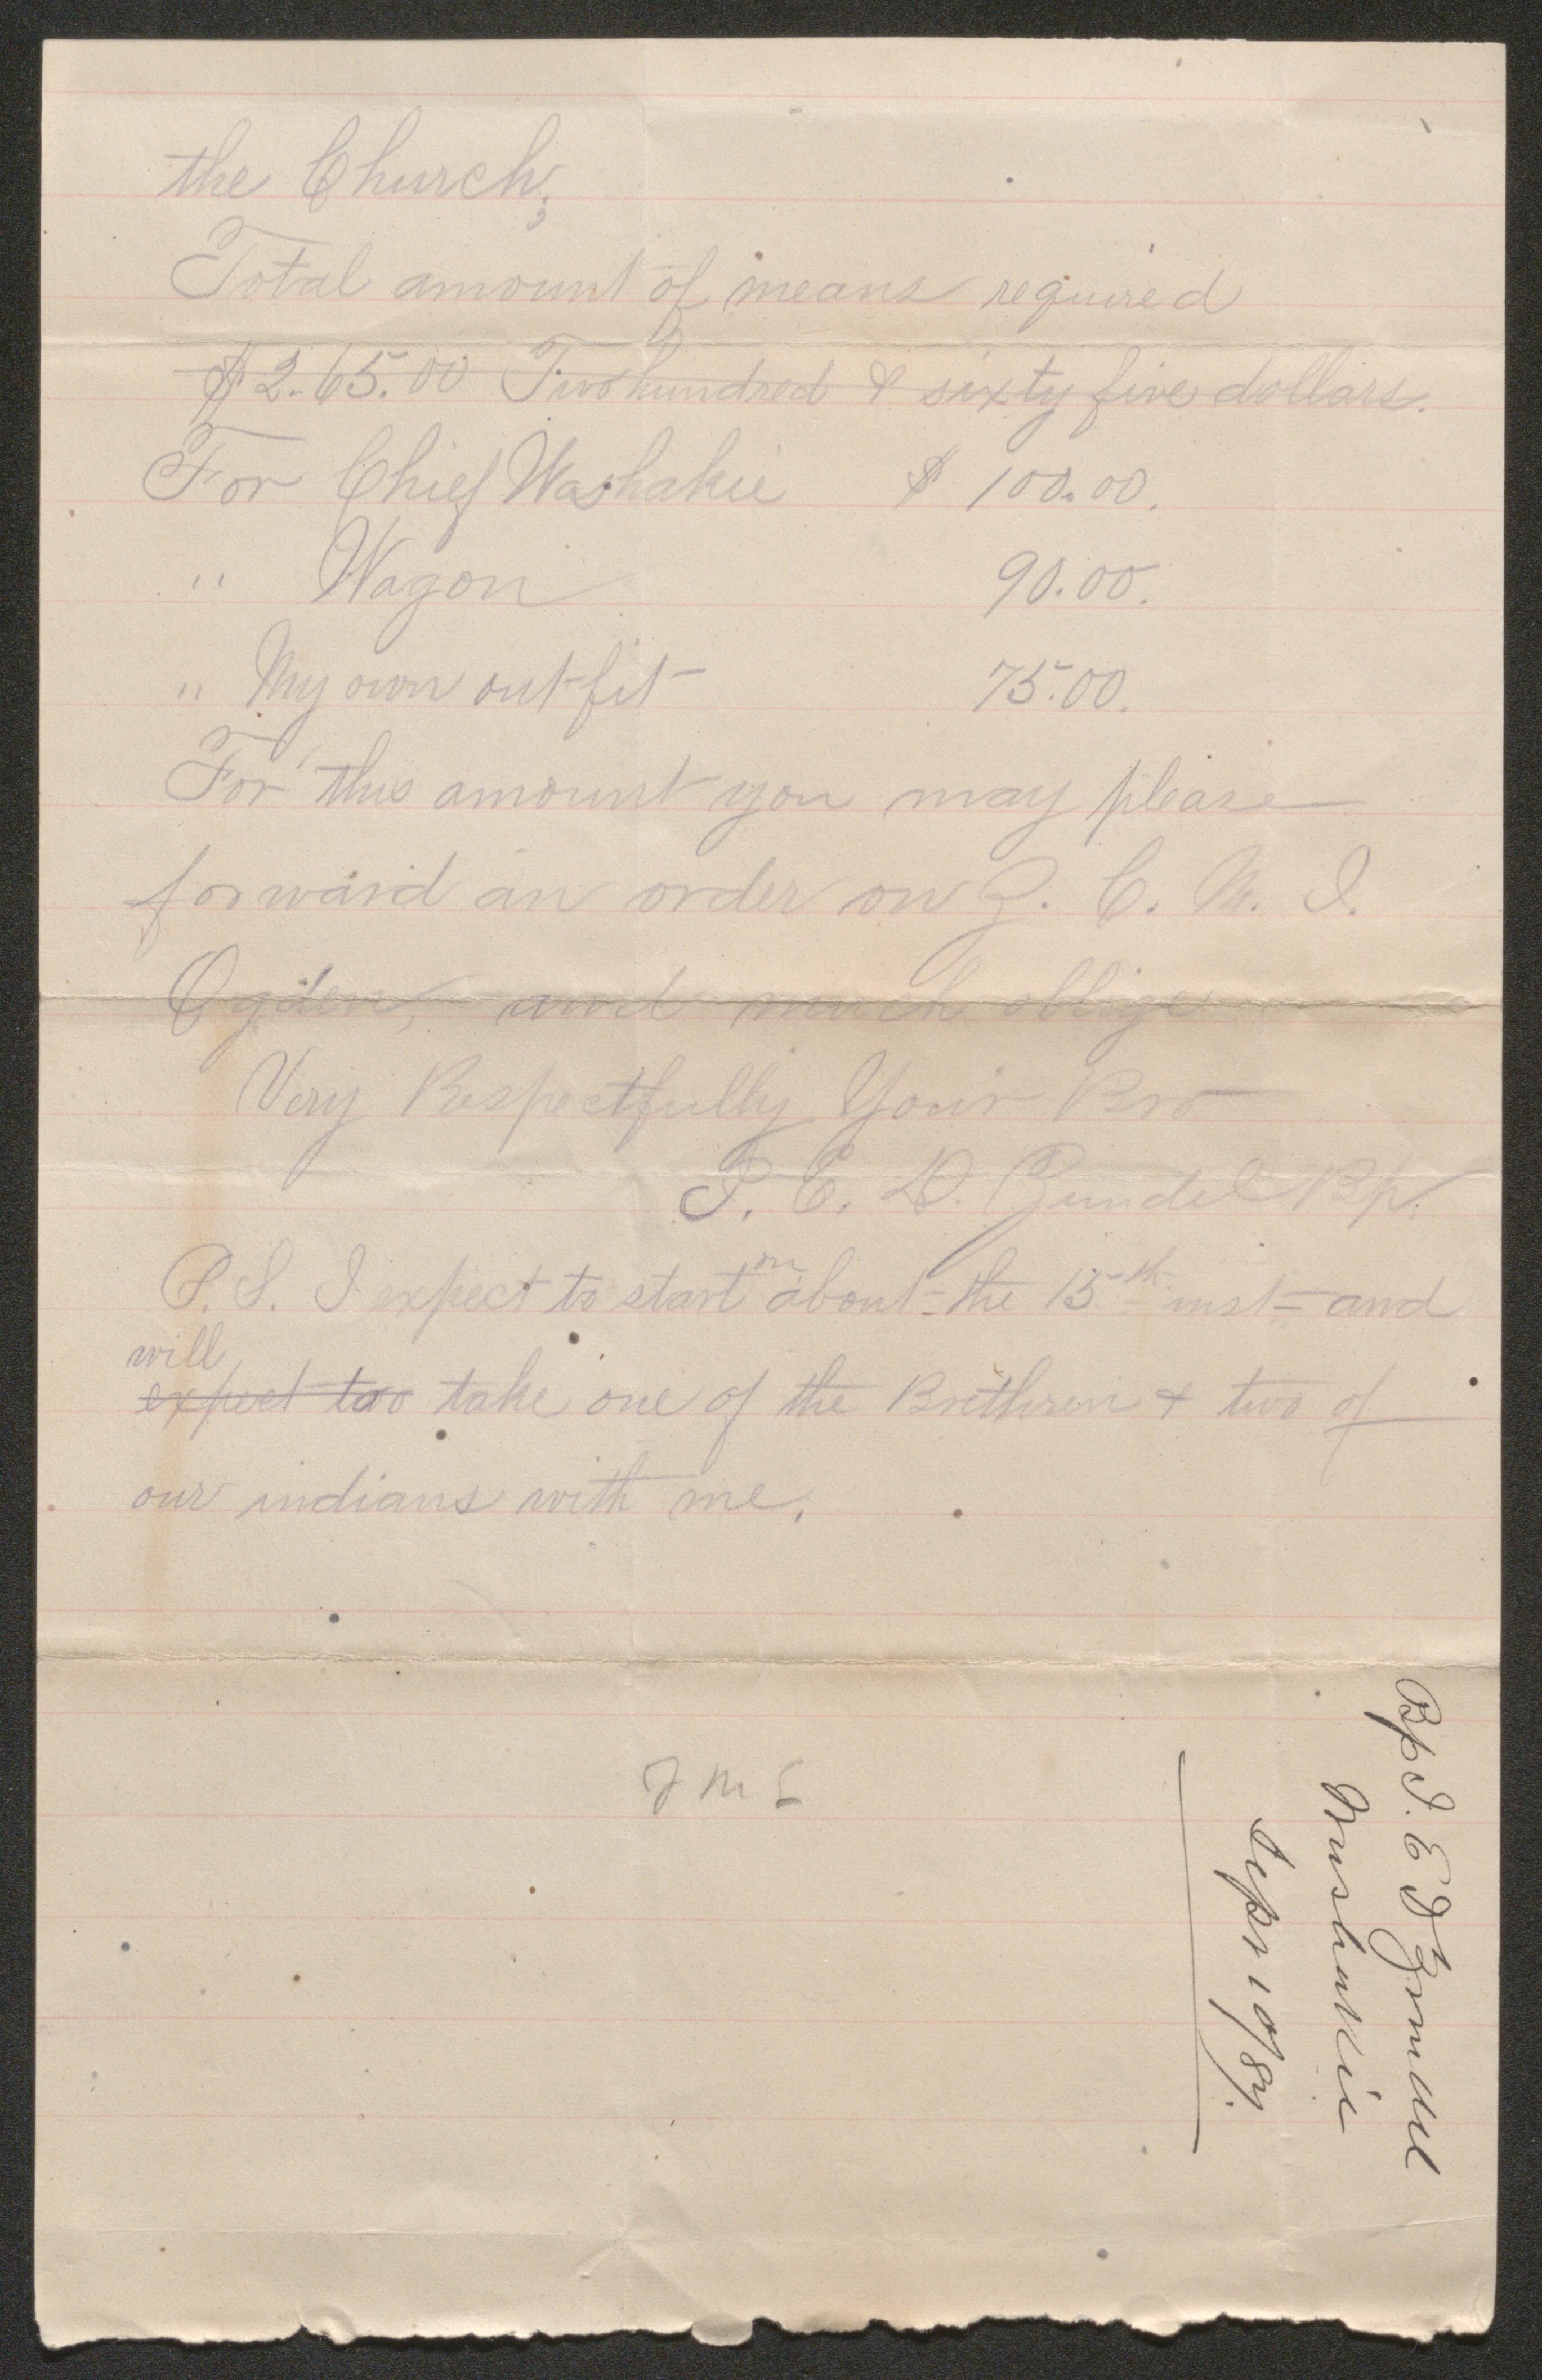 the Church;
Total amount of means required
$2.65.00 Two hundred & sixty five dollars.
For Chief Washakie $ 100.00.
" Wagon 90.00.
" My own out-fit 75.00.
For this amount you may please
forward an order on Z. C. M. I.
Ogden, and much oblige
Very Respectfully Your Bro
I. E. D. Zundel Bp.
P. S. I expect to start on about the 15th inst. and
will
expect too take one of the Brethren & two of
our indians with me.
Bp I. E D Zundel
Washakie